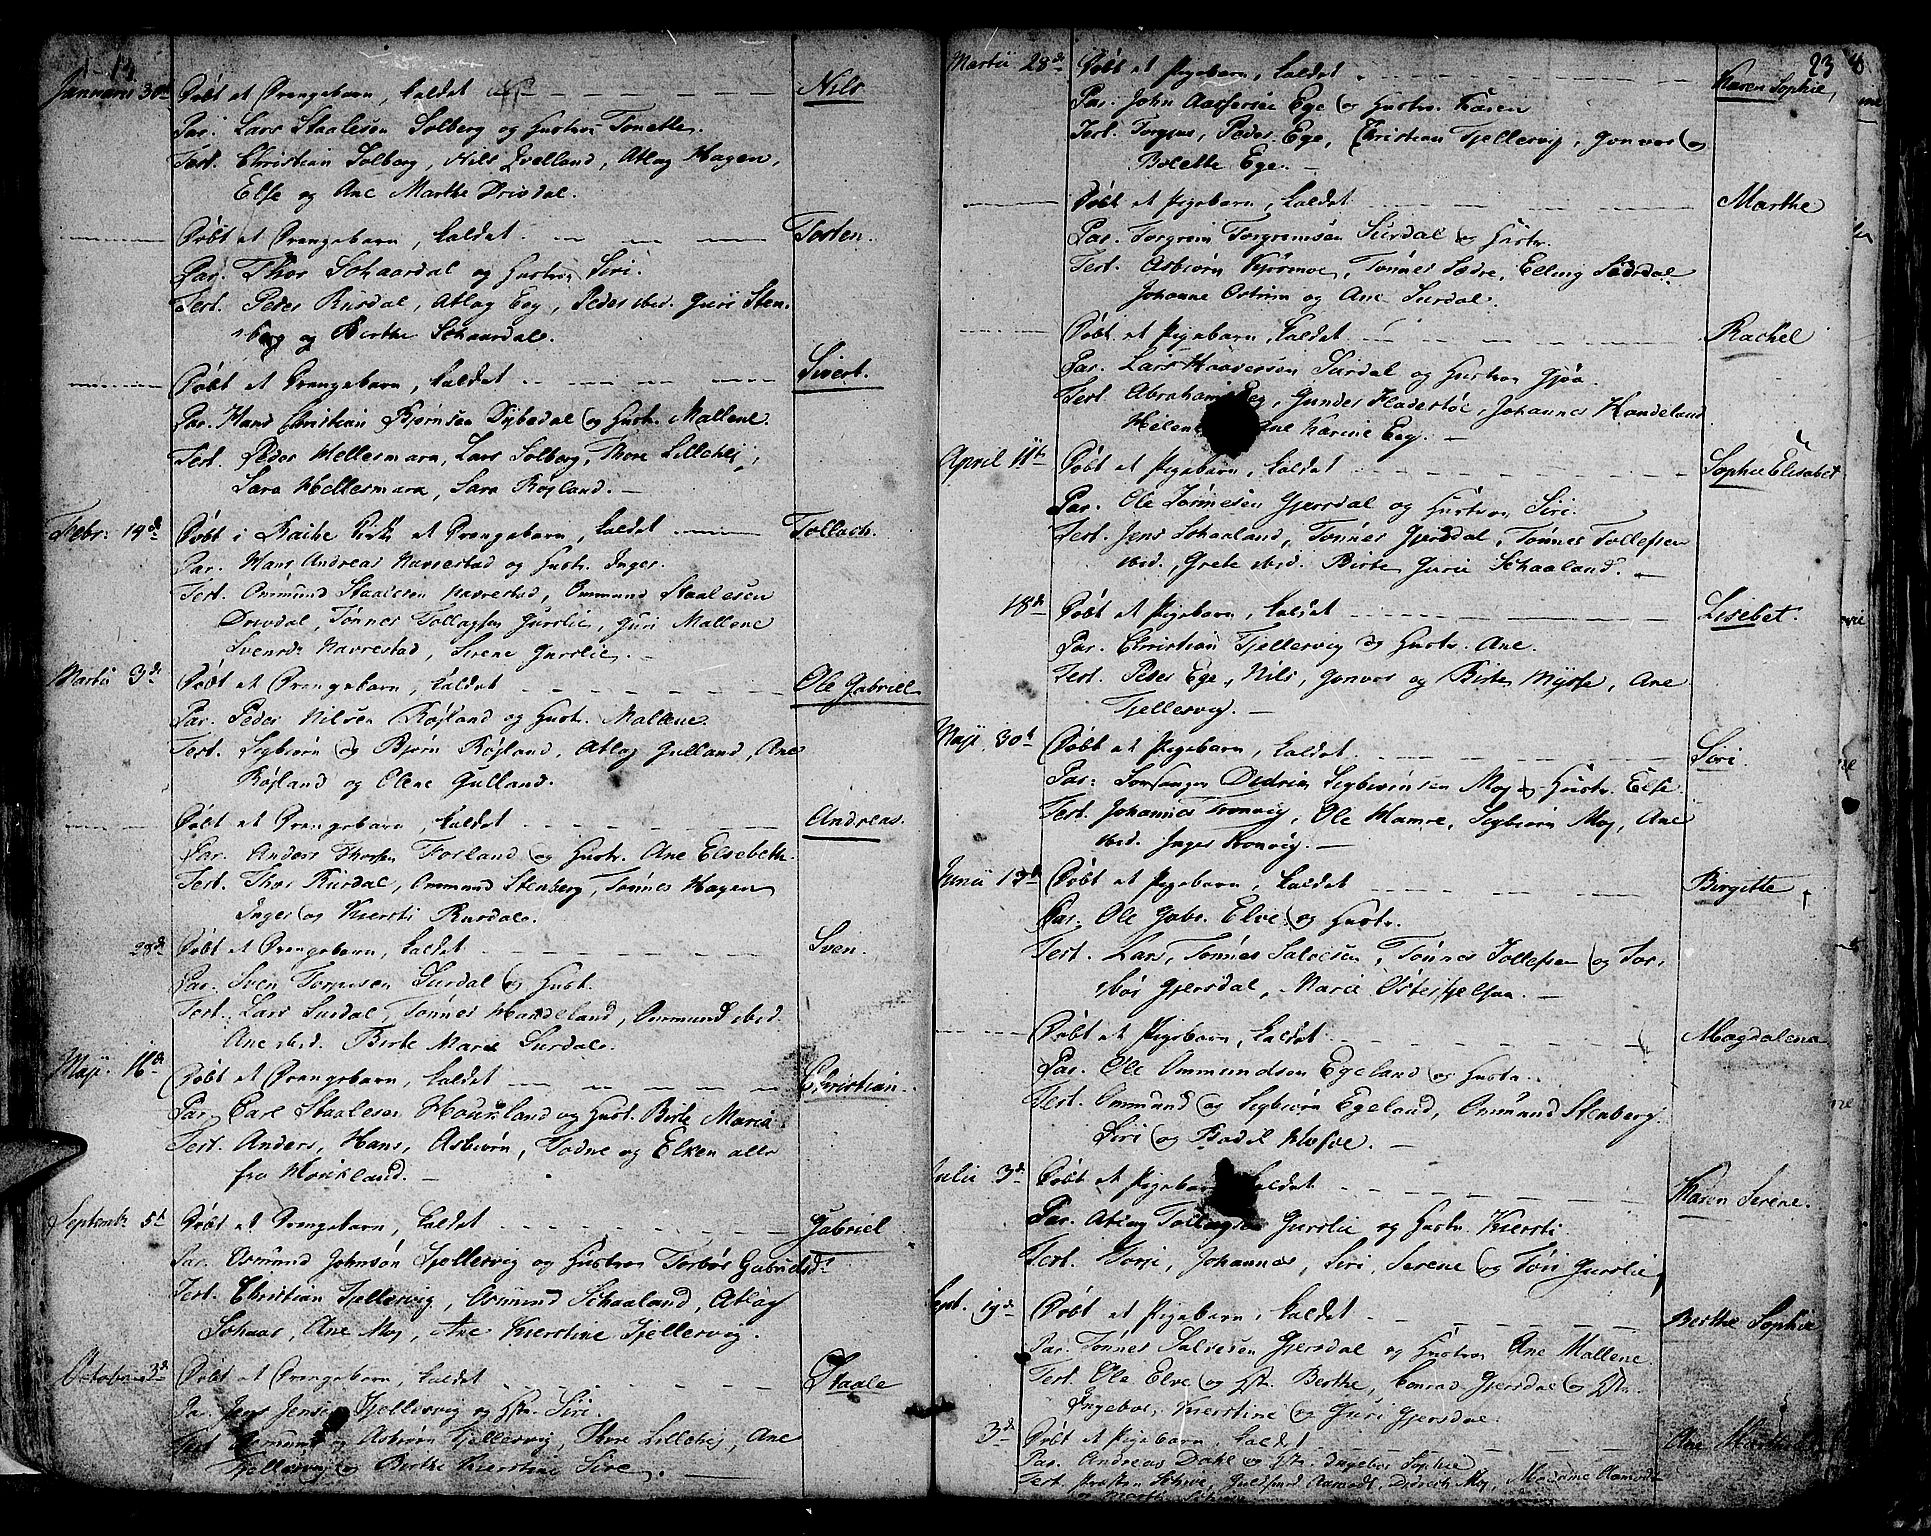 Januarii 30te Døbt et Drengebarn, kaldet Nils
Par. Lars Staalesen Solberg og Hustru Tonette.
Test. Christian Solberg, Nils Qvelland, Atlag Hagen,
Else og Ane Marthe Drivdal.
Døbt et Drengebarn, kaldet Torten.
Par. Thor Schaardal og Hustru Siri.
Test. Peder Rusdal, Atlag Eeg, Peder ibid. Guri Sten-
berg og Birthe Schaardal.
Døbt et Drengebarn, kaldet Sivert.
Par. Hans Christian Bjørnsen Dybedal og Hustr. Mallene.
Test. Peder Hellesmark, Lars Solberg, Thore Lillehei,
Sara Hellesmark, Sara Røyland.
Febr. 14de Døbt i Kirke et Drengebarn, kaldet Tollach.
Par. Hans Andreas Navrestad og Hustr. Inger.
Test. Ommund Staalesen Navrestad, Ommund Staalesen
Drivdal, Tønnes Tollagsen Gurslie, Guri Mallene
Svensd. Navrestad, Sirene Gurslie.
Martii 3de Døbt et Drengebarn, kaldet Ole Gabriel
Par. Peder Nilsen Røyland og Hustr. Mallene.
Test. Sigbiørn og Bjørn Røyland, Atlag Gulland, Ane
Røyland og Olene Gulland.
Døbt et Drengebarn, kaldet Andreas.
Par. Anders Thorsen Forland og Hustr. Ane Elsebeth.
Test. Thor Rusdal, Ommund Stenberg, Tønnes Hagen
Inger og Kiersti Rusdal.
28de Døbt et Drengebarn, kaldet Sven.
Par. Sven Torgersen Surdal og Hust.
Test. Lars Surdal, Tønnes Handeland, Ommund ibid.
Ane ibid. Birte Marie Surdal.
Maji 16de Døbt et Drengebarn, kaldet Christian.
Par. Carl Staalesen og Hust. Birte Maria
Test. Anders, Hans, Asbiørn, Todne og Elken alle
fra
Septemb. 5te Døbt et Drengebarn, kaldet Gabriel
Par. Osmund Johnsen Fjellesvig og Hustrue Torbør Gabrielsd.
Test. Christian Fjellesvig, Osmund Schaaland, Atlag
Ane Moj, Ane Kierstine Fjellesvig.
October 3de Døbt et Drengebarn, kaldet Staale
Par. Jens Jensen Fjellesvig og Hstr. Siri.
Test. Osmund og Asbiørn Fjellesvig, Thore Lillehej, Ane
Fjellesvig og Berthe Kierstine Sire.
23
Martii 28de Døbt et Pigebarn, kaldet Karen Sophie,
Par. John Aassersen Ege og Hustr. Karen
Test. Torgus, Peder Ege, Christian Fjellesvig, Gonvor og
Bolette Ege.
Døbt et Pigebarn, kaldet Marthe
Par. Torgrim Torgrimsen Surdal og Hustr.
Test. Asbiørn Kjørmoe, Tønnes Sædre, Elling
Johanne Ostrim og Ane Surdal.
Døbt et Pigebarn, kaldet Rachel
Par. Lars Haaversen Surdal og Hustrue Gjøa.
Test. Abraham Eeg, Gunder Fladestøl, Johannes Handeland
Helene Ane Karine Eeg.
April 11te Døbt et Pigebarn, kaldet Sophie Elisabet
Par. Ole Tønnesen Gjersdal og Hustrue Siri.
Test. Jens Schaaland, Tønnes Gjersdal, Tønnes Tollefsen
ibid., Grete ibid. Birte Gurie Schaaland.
18de Døbt et Pigebarn, kaldet Lisebet.
Par. Christian Fjellesvig og Hustr. Ane.
Test. Peder Ege, Nils, Gonvor og Birte Mysse, Ane
Fjellesvig.
Maji 30te Døbt et Pigebarn, kaldet Siri.
Par. Didrich Sigbiørnsen Moj og Hustr. Else.
Test. Johannes Tronvig, Ole Hamre, Sigbiørn Moj, Ane
ibid. Inger Tronvig.
Junii 13de Døbt et Pigebarn, kaldet Birgitte
Par. Ole Gabr. Elve og Hustr.
Test. Lars, Tønnes Salvesen, Tønnes Tollefsen og Tor-
bør Gjersdal, Marie
Døbt et Pigebarn, kaldet Magdalena
Par. Ole Ommundsen Egeland og Hustr.
Test. Ommund og Sigbiørn Egeland, Ommund Stenberg,
Siri og Bodil
Julii 3de Døbt et Pigebarn, kaldet Karen Serene.
Par. Atlag Tollagsen Gurslie og Hustr. Kiersti
Test. Torje, Johannes, Siri, Serene og Tøri Gurslie
Sept. 19de Døbt et Pigebarn, kaldet Berthe Sophie
Par. Tønnes Salvesen Gjersdal og Hustrue Ane Mallene.
Test. Ole Elve og Hstr. Berthe, Conrad Gjersdal og Hstr.
Ingebor, Kierstine og Guri Gjersdal.
3de Døbt et Pigebarn, kaldet Ane
Par. Andreas Dahl og Hstr. Ingebor Sophie
Test. Didrich Moj, Madame